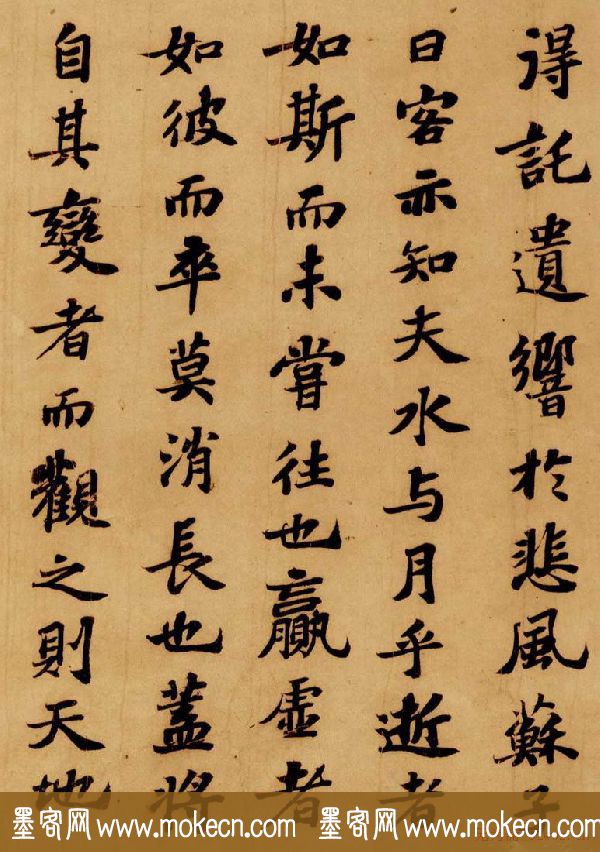 得託遺響於悲風蘇子
曰客亦知夫水与月乎逝者
如斯而未嘗往也贏虛者
如彼而卒莫消長也蓋將
自其變者而觀之則天地
墨客网 www.mokecn.com 墨客网 www.mokecn.com